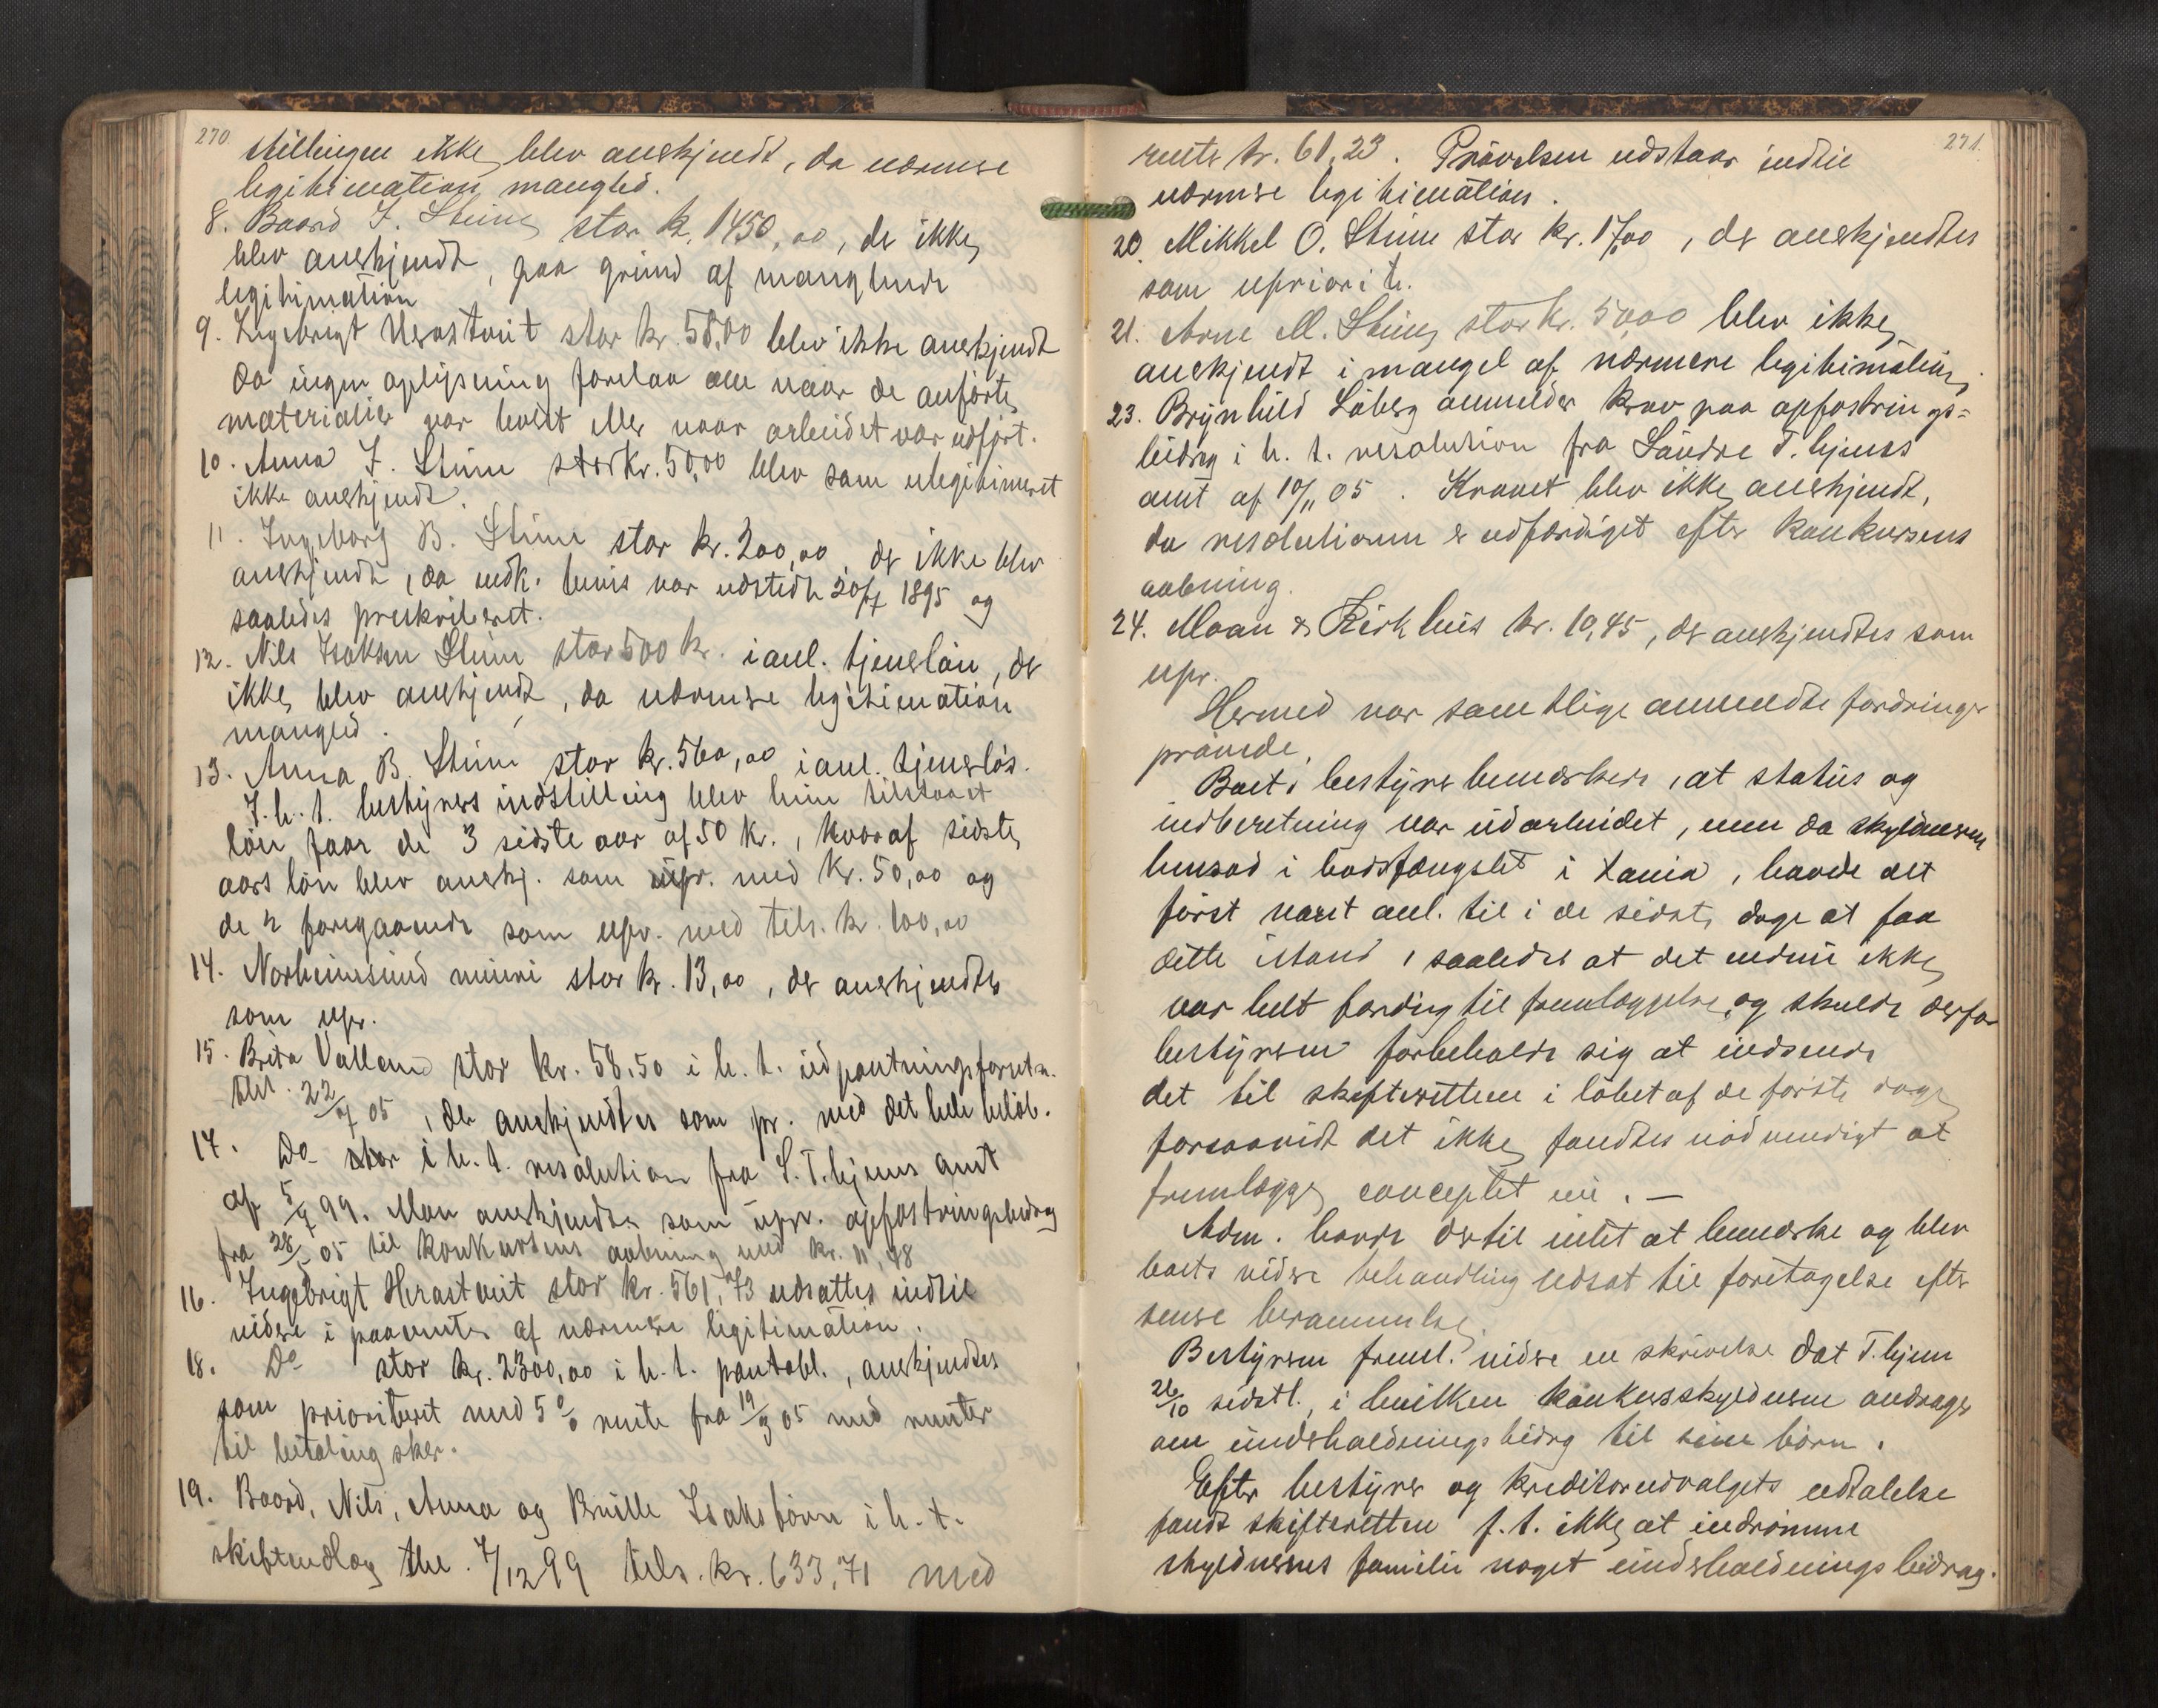 270
stillingen ikke blev anerkjendt, da nærmere
legitimation mangled.
8. Baard I. Steine stor k. 1450,00, der ikke
blev anerkjendt, paa grund af manglende
legitimation
9. Ingebrigt Nerastveit stor kr. 58,00 blev ikke anerkjendt
da ingen oplysning forelaa om naar de anførte
materialier var kost eller naar arbeidet var udført.
10. Anna I. Steine stor kr. 50,00 blev som ulegitimeret
ikke anerkjendt.
11. Ingeborg B. Steine stor kr. 200,00, der ikke blev
anerkjendt, da vedk. bevis var udstedt 20/7 1895 og
saaledes preskriberet.
12. Nils Isaksen Steine stor 500 kr. i anl. tjenerløn, der
ikke blev anerkjendt, da nærmere legitimation
mangled.
13. Anna B. Steine stor kr. 560,00 i anl. tjenerløs.
I h. t. bestyrers indstilling blev hun tilstaaet
løn faar de 3 sidste aar af 50 kr., hvoraf sidste
aars løn blev anerkj. som upr. med kr. 50,00 og
de 2 foregaaende som upr. med tils. kr. 100,00
14. Norheimsund mineri stor kr. 13,00, der anerkjendtes
som upr.
15. Brita Valland stor kr. 58,50 i h. t. udpantningsforretn.
dat. 22/7 05, der anerkjendtes som pr. med det hele beløb.
17. Do stor i h. t. resolution fra S. T.hjems amt
af 5/7 99. Man anerkjendte som upr. opfostringsbidrag
fra 28/5 05 til konkursens aabning med kr. 11,48
16. Ingebrigt Nerastveit stor kr. 561,73 udsattes indtil
videre i paavente af nærmere legitimation.
18. Do stor kr. 2300,00 i h. t. pantobl., anerkjendtes
som prioriteret med 5 % rente fra 19/9 05 med renter
til betaling sker.
19. Baard, Nils, Anna og Brville Isaksbørn i h. t.
skifteudlæg thl. 7/12 99 tils. kr. 633,71 med
271
rente kr. 61,23. Prøvelsen udstaar indtil
nærmere legitimation.
20. Mikkel O. Steine stor kr. 17,00, der anerkjendtes
som uprioritr.
21. Arne M. Steine stor kr. 50,00 blev ikke
anerkjendt i mangel af nærmere legitimation.
23. Brynhild Løberg anmelder krav paa opfostrings-
bidrag i h. t. resolution fra Søndre T. hjems
amt af 10/11 05. Kravet blev ikke anerkjendt,
da resolutionen er udfærdiget efter konkursens
aabning.
24. Moan & Kirkhus kr. 10,45, der anerkjendtes som
upr.
Hermed var samtlige anmeldte fordringer
prøvede.
Boets bestyrer bemærkede, at status og
indberetning var udarbeidet, men da skyldneren
hensad i bodsfængslet i Xania, havde det
først været anl. til i de sidste dage at faa
dette istand, saaledes at det endnu ikke
var helt færdig til fremlæggelse, og skulde derfor
bestyreren forbeholde sig at indsende
det til skifteretten i løbet af de første dage
forsaavidt det ikke fandtes nødvendigt at
fremlægge conceptet nu. —
Adm. havde dertil intet at bemærke og blev
boets videre behandling udsat til foretagelse efter
senere berammelse.
Bestyreren freml. videre en skrivelse dat T.hjem
26/10 sidstl., i hvilken konkursskyldneren andrager
om underholdningsbidrag til sine børn.
Efter bestyrer og kreditorudvalgets udtalelse
fandt skifteretten f. t. ikke at indrømme
skyldnerens familie noget underholdningsbidrag.